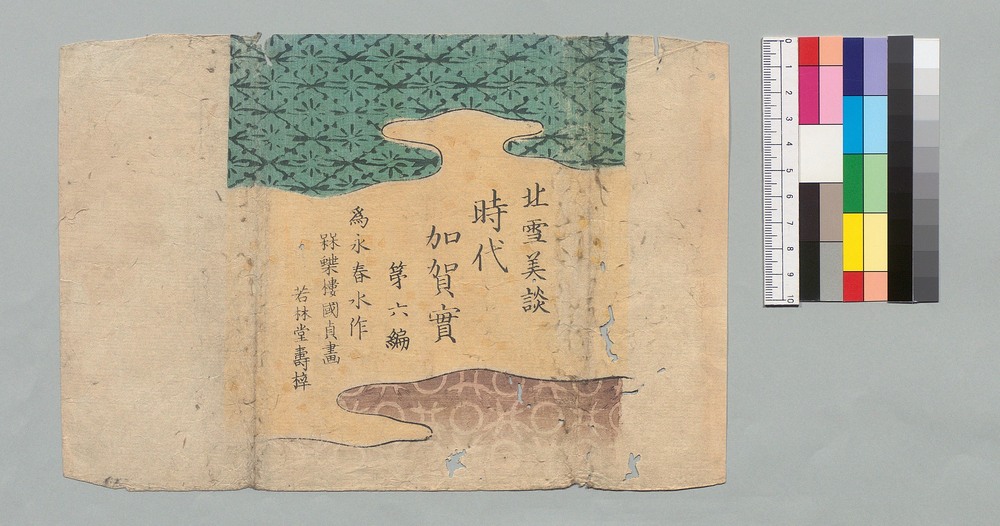 北雪美談
時代
加賀實
第六編
爲永春水作
國貞畫
若林堂壽梓
0 1 2 3 4 5 6 7 8 9 10